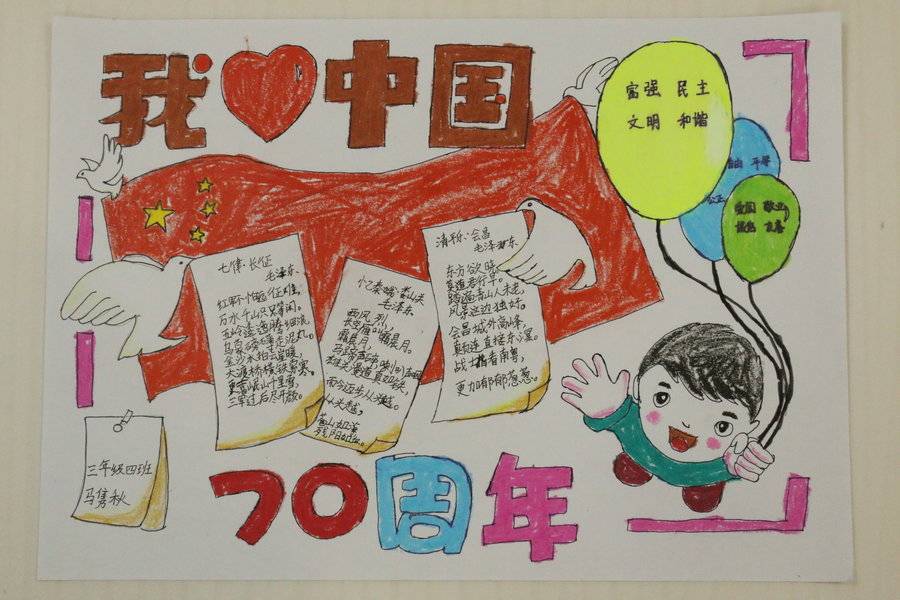 我 中国
富强 民主
文明 和谐
自由 平等
公正
爱国 敬业
友善
七律·长征
毛泽东
红军不怕远征难,
万水千山只等闲。
五岭逶迤腾细浪,
乌蒙磅礴走泥丸。
金沙水拍云崖暖,
大渡桥横铁索寒。
更喜岷山千里雪,
三军过后尽开颜。
忆秦娥·娄山关
毛泽东
西风烈,
长空雁叫霜晨月。
霜晨月,
马蹄声碎,
而今迈步从头越。
从头越,
苍山如海
残阳如血。
清平乐·会昌
毛泽东
东方欲晓,
莫道君行早。
踏遍青山人未老,
风景这边独好。
会昌城外高峰
颠连直接东溟。
战士指看南粤,
更加郁郁葱葱。
三年级四班
马隽秋
70周年